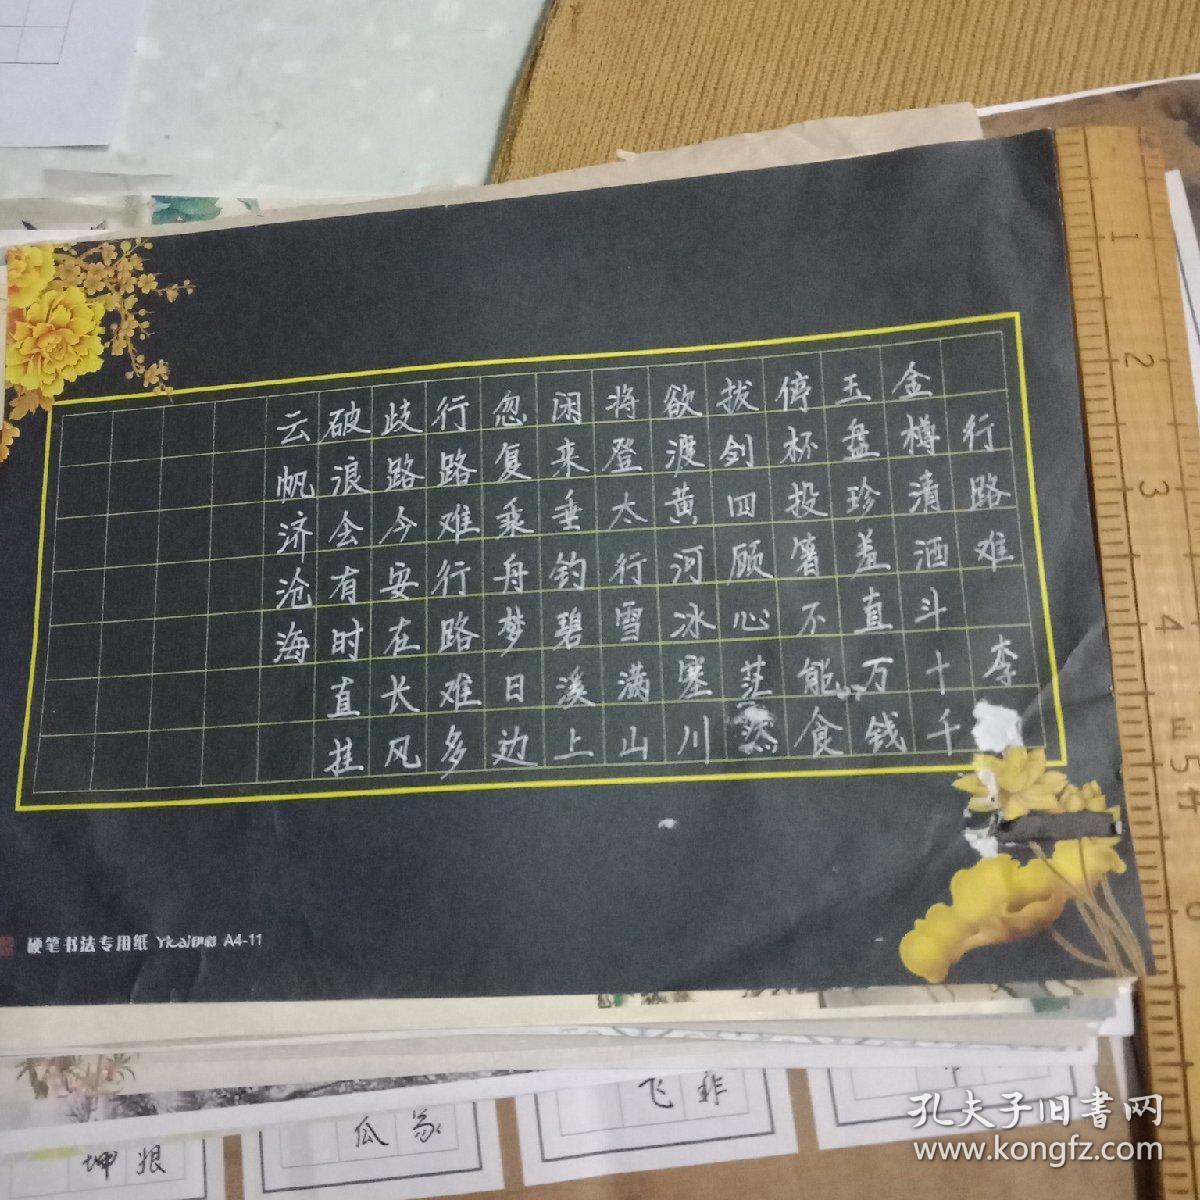 行路难 李
金樽清酒斗十千
玉盘珍羞直万钱
停杯投箸不能食
拔剑四顾心茫然
欲渡黄河冰塞川
将登太行雪满山
闲来垂钓碧溪上
忽复乘舟梦日边
行路难行路难多
歧路今安在长风
破浪会有时直挂
云帆济沧海
硬笔书法专用纸 A4-11
1
2
3
4
5
6
飞 非
瓜
坤 狠
孔夫子旧书网
www.kongfz.com